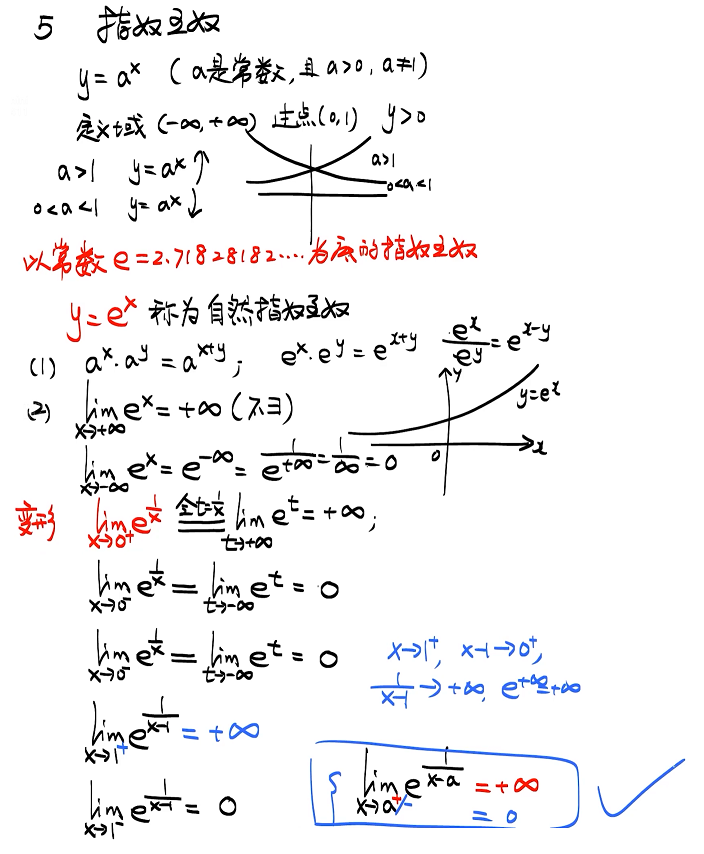 5 指数函数
y = a^x (a是常数,且 a>0, a≠1)
定义域 (-∞,+∞) 过点(0,1) y>0
a>1 y=a^x ↑
a>1
0<a<1 y=a^x ↓
0<a<1
以常数 e=2.71828182....为底的指数函数
y=e^x 称为自然指数函数
(1) a^x·a^y = a^{x+y}; e^x·e^y = e^{x+y} e^x/e^y = e^{x-y}
y
y=e^x
(2) lim_{x→+∞} e^x = +∞ (不∃)
lim_{x→-∞} e^x = e^{-∞} = 1/e^{+∞} = 1/∞ = 0
0 x
变形 lim_{x→0^+} e^{1/x} 令t=1/x lim_{t→+∞} e^t = +∞;
lim_{x→0^-} e^{1/x} = lim_{t→-∞} e^t = 0
lim_{x→0^-} e^{1/x} = lim_{t→-∞} e^t = 0
x→1^+, x-1→0^+,
1/(x-1) → +∞, e^{+∞}=+∞
lim_{x→1^+} e^{1/(x-1)} = +∞
lim_{x→1^-} e^{1/(x-1)} = 0
lim_{x→a^+} e^{1/(x-a)} = +∞
= 0